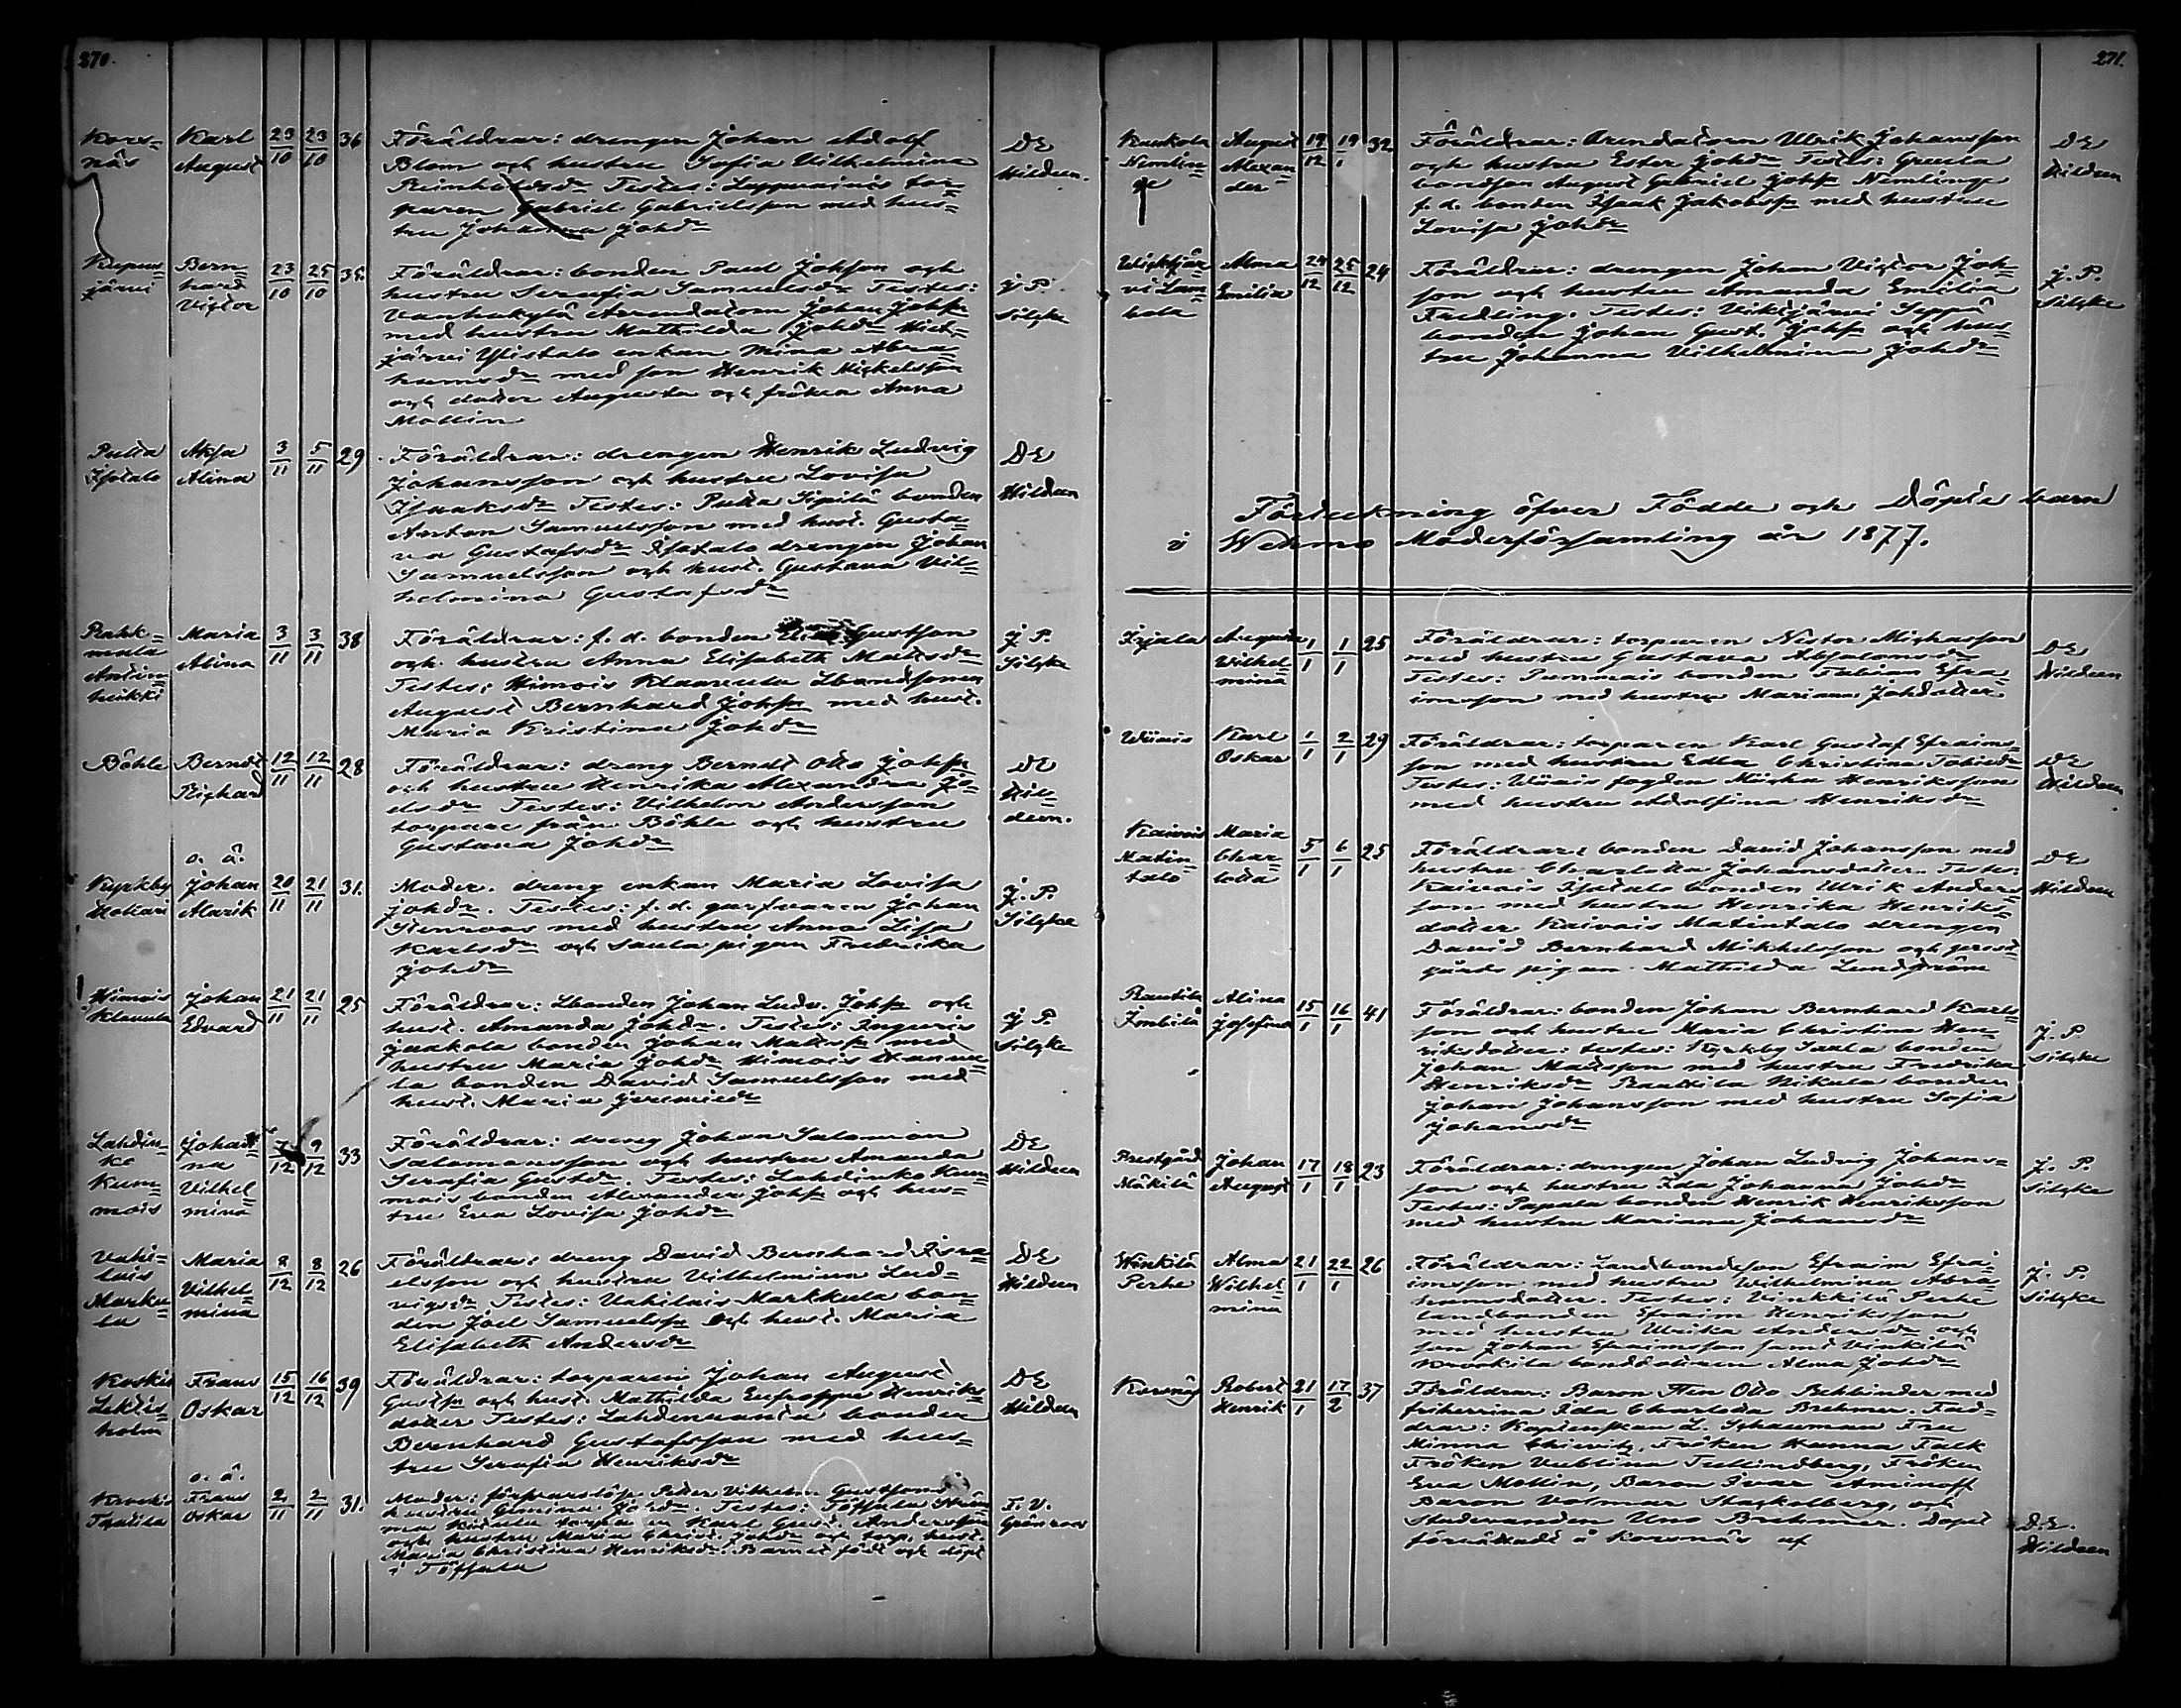 270.
Kors=
näs
Karl
August
23/10 23/10 36
Föräldrar: drengen Johan Adolf
Blom och hustru Sofia Vilhelmina
Reinholdsdr Testes: Luppurainio tor=
paren Gabriel Gabrielsson med hus=
tru Johanna Johdr
DE
Hildeen.
Kupus=
järvi
Bern=
hard
Victor
23/10 25/10 35.
Föräldrar: bonden Paul Johsson och
hustru Serafia Samuelsdr Testes:
Vanhakylä Arrendatorn Johan Johss
med hustru Mathilda Johdr Hiet=
järvi Ylistalo enkan Mina Abra=
hamsdr med son Henrik Mickelsson
och dotter Augusta och fröken Anna
Mollin
J. P.
Silcke
Putta
Isotalo
Aksa
Alina
3/11 5/11 29
Föräldrar: drengen Henrik Ludvig
Johansson och hustru Lovisa
Isaksdr Testes: Putta Sipilä bonden
Anton Samuelsson med hust. Gusta=
va Gustafsdr Isotalo drengen Johan
Samuelsson och hust. Gustava Vil=
helmina Gustafsdr
DE
Hildeen
Rahk=
mala
Antin=
heikki
Maria
Alina
3/11 3/11 38
Föräldrar: f. d. bonden Gustsson
och hustru Anna Elisabeth Mattsdr
Testes: Himois Klaavula Lbondsonen
August Bernhard Johss med hust.
Maria Kristina Johdr
J. P.
Silcke
Böhle
Berndt
Richard
12/11 12/11 28
Föräldrar: dreng Berndt Otto Johss
och hustru Henrika Alexandra Jo=
elsdr Testes: Vilhelm Andersson
torpare från Böhle och hustru
Gustava Johdr
DE
Hil=
deen.
Kyrkby
Hokari
o. ä.
Johan
Alarik
20/11 21/11 31.
Moder. dreng enkan Maria Lovisa
Johdr. Testes: f. d. garfvaren Johan
Stenroos med hustru Anna Lisa
Karlsdr och Saula pigan Fredrika
Johdr
J. P.
Silcke
Himois
Klavula
Johan
Edvard
21/11 21/11 25
Föräldrar: Lbonden Johan Ludv. Johss och
hust. Amanda Johdr. Testes: Ingeris
Jaakola bonden Johan Mattss med
hustru Maria Johdr Himois Hannu=
la bonden David Samuelsson med
hust. Maria Jeremiedr
J. P.
Silcke
Lahdin=
ko
Kum=
mois
Johan=
na
Vilhel=
mina
7/12 9/12 33
Föräldrar: dreng Johan Salomon
Salomonsson och hustru Amanda
Serafia Gustdr. Testes: Lahdinko Kum=
mois bonden Alexander Johss och hus=
tru Eva Lovisa Johdr
DE
Hildeen
Vahi=
lais
Marku=
la
Maria
Vilhel=
mina
8/12 8/12 26
Föräldrar: dreng David Bernhard Isra=
elsson och hustru Vilhelmina Lud=
vigsdr Testes: Vahilais Markkula bon=
den Joel Samuelss och hust. Maria
Elisabeth Andersdr
DE
Hildeen
Koskis
Lektis=
holm
Frans
Oskar
15/12 16/12 39
Föräldrar: torparen Johan August
Gustss och hust. Mathilda Eufrosyne Henriks=
dotter Testes: Lahdenranta bonden
Bernhard Gustafsson med hus=
tru Serafia Henriksdr
DE
Hildeen
o. ä.
Frans
Oskar
2/11 2/11 31.
torparen Karl Gust. Andersson
och hustru Maria Christ. Johdr och torp. hust.
Maria Christina Henriksdr. Barnet född och döpt
i Töffsala
F. V.
Grönroos
271.
Kaukola
Nemlin=
ge
August
Alexan=
der
19/12 19/1 32
Föräldrar: Arendatorn Ulrik Johansson
och hustru Ester Johdr Testes: Gruula
bondson August Gabriel Johss Nemlinge
f. d. bonden Isaak Jakobss med hustru
Lovisa Johdr
DE
Hildeen
Wickjär=
vi Lam=
bola
Alma
Emilia
24/12 25/12 24
Föräldrar: drengen Johan Victor Joh=
son och hustru Amanda Emilia
Fredling. Testes: Vikkjärvi Seppä
bonden Johan Gust. Johss och hus=
tru Johanna Vilhelmina Johdr
J. P.
Silcke
Förteckning öfver Födde och Döpte barn
i Wehmo Moderförsamling år 1877.
Irjala
Augusta
Wilhel=
mina
1/1 1/1 25
Föräldrar: torparen Nestor Michasson
med hustru Gustava Absalomsdr
Testes: Tummais bonden Fabian Efra=
imsson med hustru Mariana Johdotter.
DE
Hildeen
Wiiais
Karl
Oskar
1/1 2/1 29
Föräldrar: torparen Karl Gustaf Efraims=
son med hustru Edla Christina Tobiedr
Testes: Wiiais fogden Micha Henriksson
med hustru Adolfina Henriksdr
DE
Hildeen.
Kaivois
Matin=
talo
Maria
Char=
lotta
5/1 6/1 25
Föräldrar: bonden David Johansson med
hustru Charlotta Johansdotter. Testes:
Kaivois Isotalo bonden Ulrik Anders=
son med hustru Henrika Henriks=
dotter Kaivois Matintalo drengen
David Bernhard Mikkelsson och prest=
gårds pigan Mathilda Lundström
DE
Hildeen
Rautila
Imbilä
Alina
Josefina
15/1 16/1 41
Föräldrar: bonden Johan Bernhard Karls=
son och hustru Maria Christina Hen=
riksdotter: testes: Kyrkby Saula bonden
Johan Matsson med hustru Fredrika
Henriksdr Rauttila Nikula bonden
Johan Johansson med hustru Sofia
Johansdr
J. P.
Silcke
Prestgård
Mäkilä
Johan
August
17/1 18/1 23
Föräldrar: drengen Johan Ludvig Johans=
son och hustru Ida Johanna Johdr
Testes: Papala bonden Henrik Henriksson
med hustru Mariana Johansdr
J. P.
Silcke
Winkilä
Perhe
Alma
Wilhel=
mina
21/1 22/1 26
Föräldrar: Landbondeson Efraim Efra=
imsson med hustru Wilhelmina Abra=
hamsdotter. Testes: Vinkkilä Perhe
landbonden Efraim Henriksson
med hustru Ulrika Andersdr och
son Johan Efraimsson samt Vinkilä
bonddottren Alma Johdr
J. P.
Silcke
Korsnäs
Robert
Henrik
21/1 17/2 37
Föräldrar: Baron Sten Otto Rehbinder med
friherrinna Ida Charlotta Brehmer. Fad=
drar: Kaptenskan L. Schauman Fru
Minna Chiewitz, Fröken Hanna Falk
Fröken Vublina Tallindberg, Fröken
Eva Mollin, Baron Ivar Aminoff
Baron Volmar Stackelberg, och
Studeranden Uno Brehmer. Dopet
förrättadt å Korsnäs af
D.E.
Hildeen